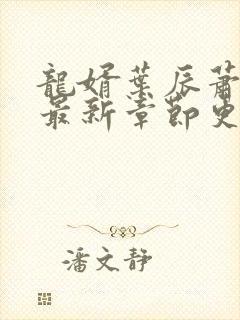 龍婿葉辰蕭
最新章節更
潘文静